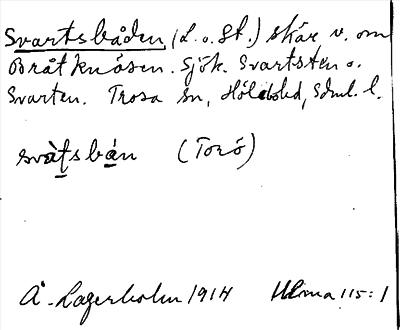 Svartsbåden, (L. o. St.) skär v. om
Bråtknösen. Sjök. Svartsten o.
Svarten. Trosa sn, Hölebohd, Sdml. l.
svàtsbán (Torö)
A. Lagerholm 1914 Ulma 115:1